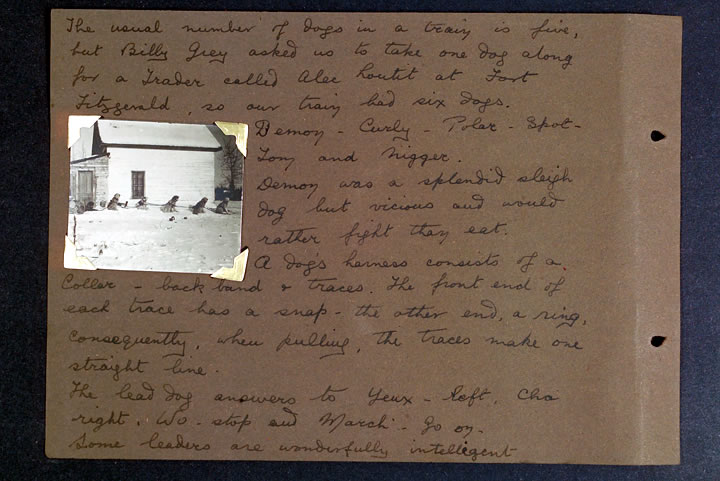 The usual number of dogs in a train is five,
but Billy Grey asked us to take one dog along
for a Trader called Alec Loutit at Fort
Fitzgerald, so our train had six dogs.
Demon - Curly - Polar - Spot -
Tony and Nigger.
Demon was a splendid sleigh
dog but vicious and would
rather fight than eat.
A dogs harness consists of a
Collar - back band & traces. The front end of
each trace has a snap - the other end, a ring,
consequently, when pulling, the traces make one
straight line.
The lead dog answers to Yeux - left, Cha
right, Wo - stop and March - Go on -
Some leaders are wonderfully intelligent